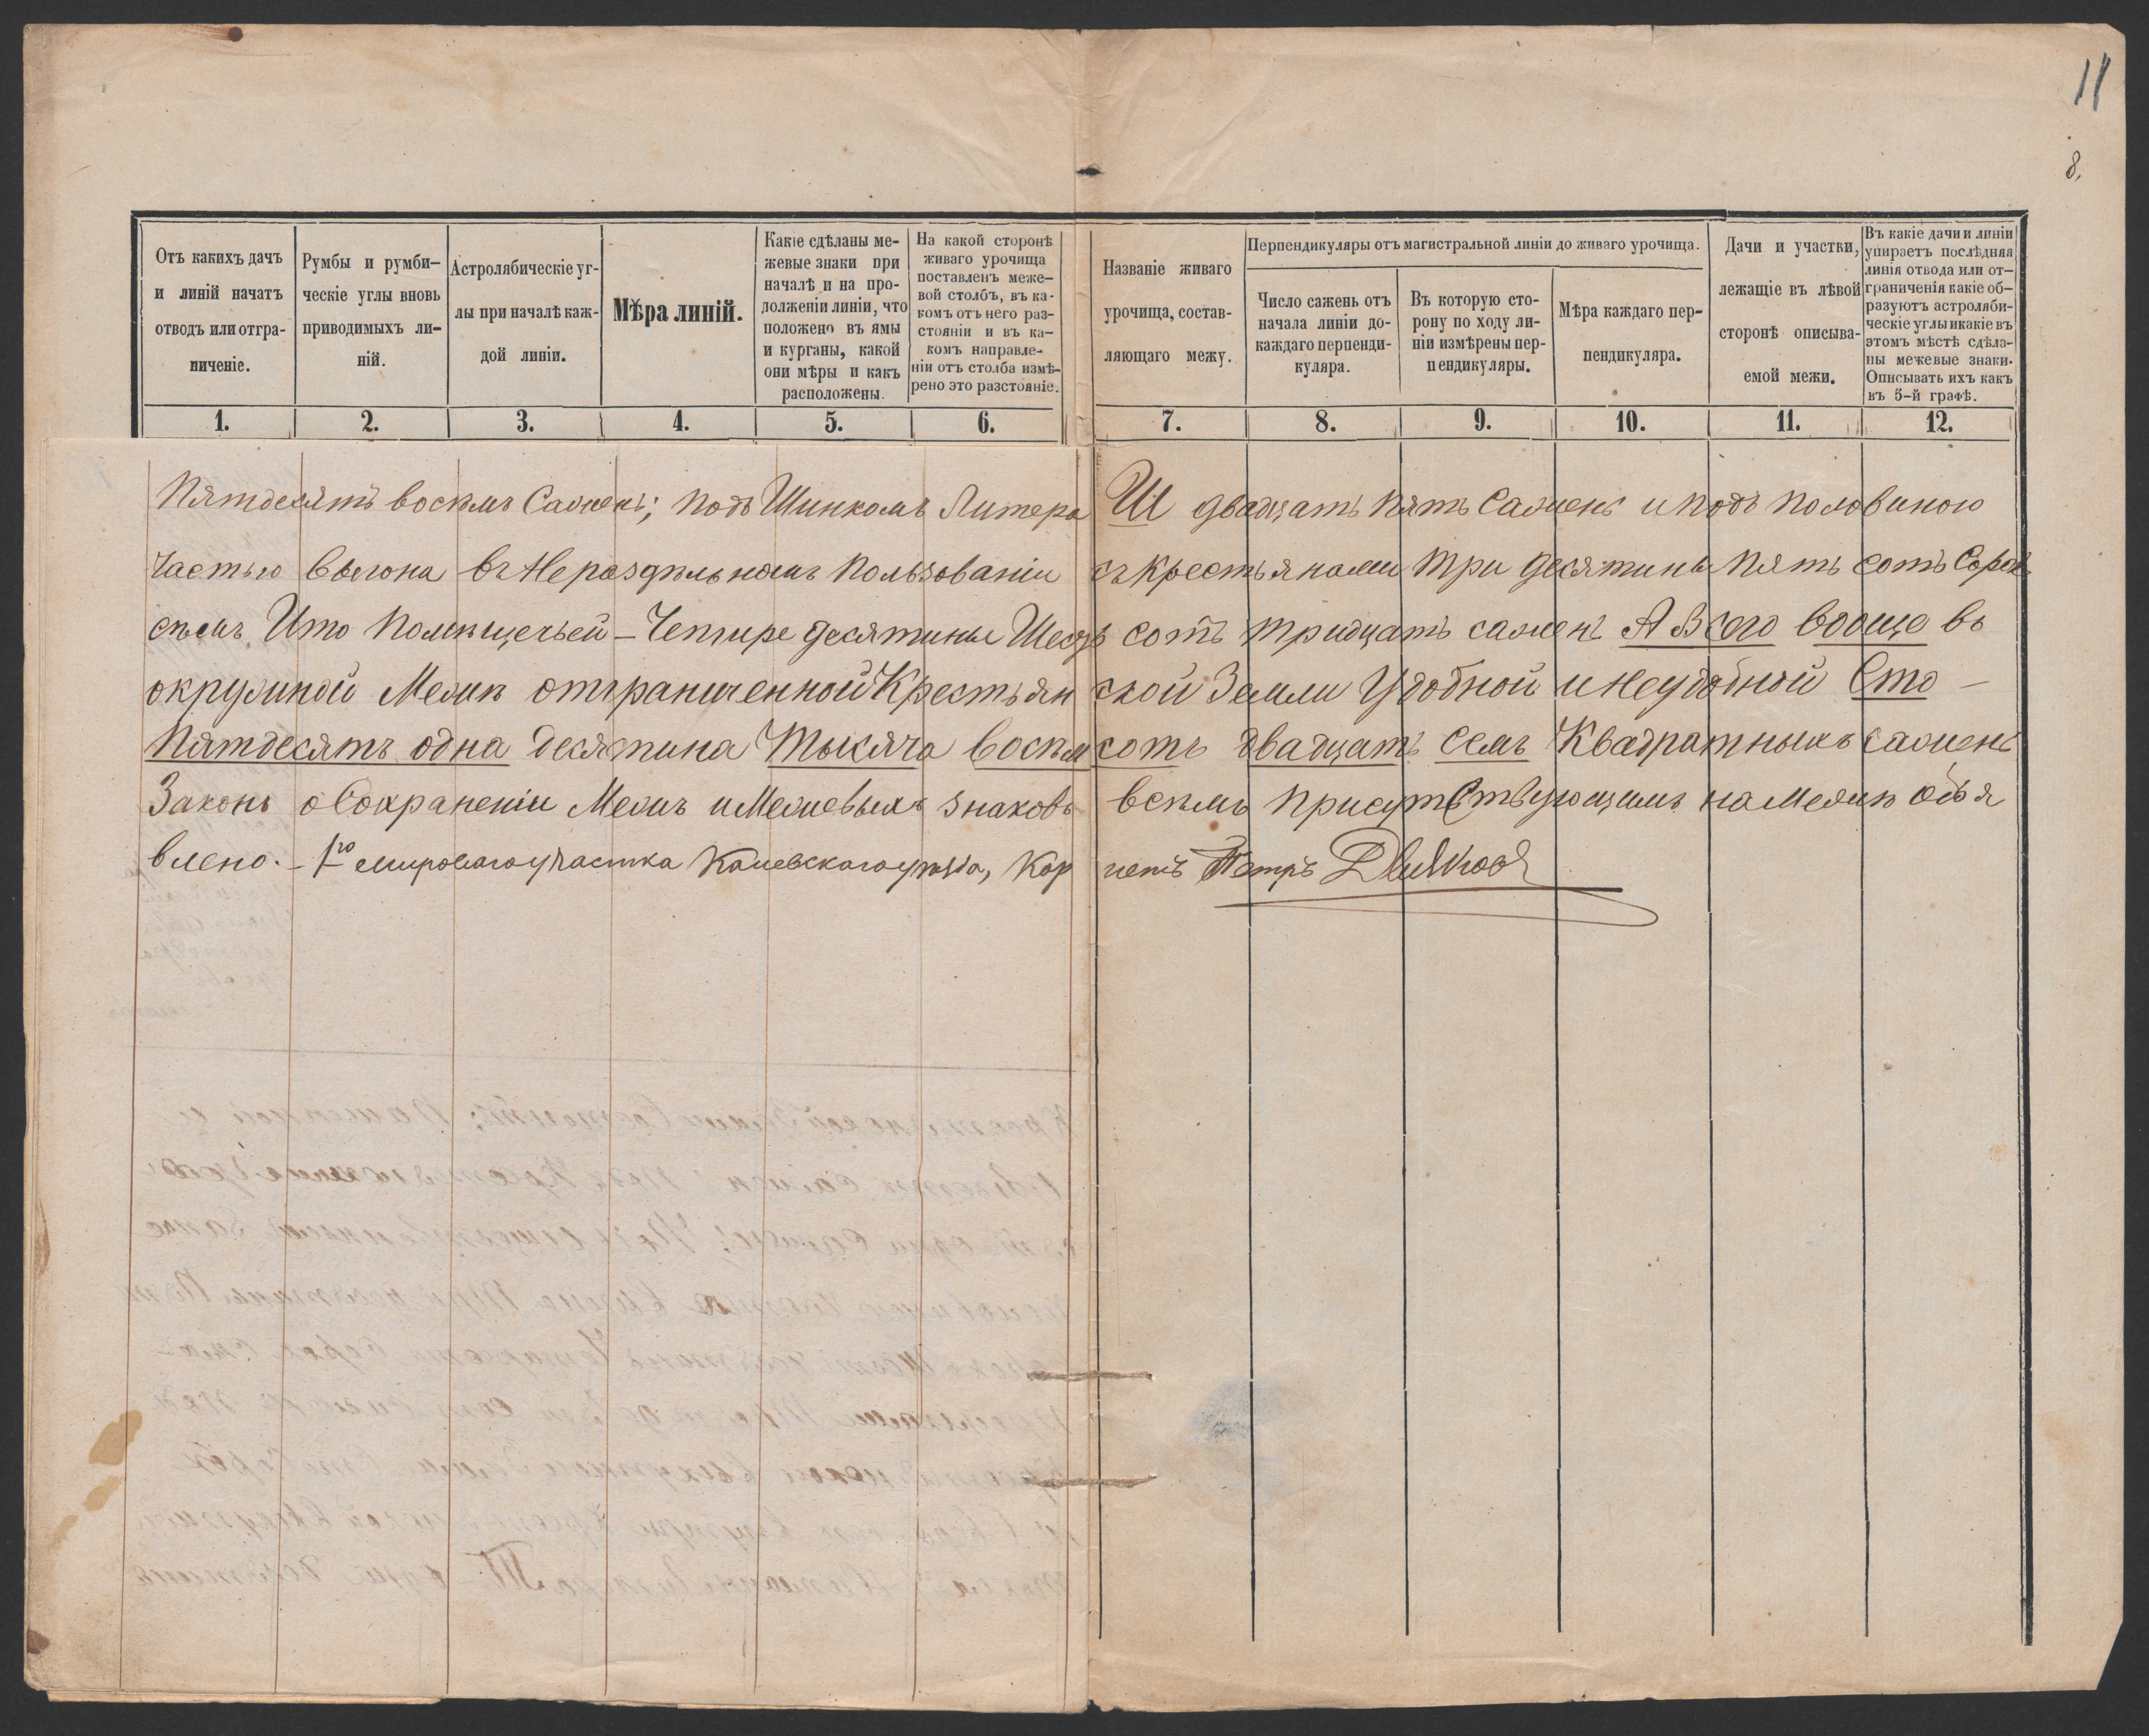 11
8.
Отъ какихъ дачъ
и линій начатъ
отводъ или отгра-
ниченіе.
Румбы и румби-
ческіе углы вновь
приводимыхъ ли-
ній.
Астролябическіе уг-
лы при началѣ каж-
дой линіи.
Мѣра линій.
Какіе сдѣланы ме-
жевые знаки при
началѣ и на про-
долженіи линіи, что
положено въ ямы
и курганы, какой
они мѣры и какъ
расположены.
На какой сторонѣ
живаго урочища
поставленъ меже-
вой столбъ, въ ка-
комъ отъ него раз-
стояніи и въ ка-
комъ направле-
ніи отъ столба измѣ-
рено это разстояніе.
Названіе живаго
урочища, состав-
ляющаго межу.
Перпендикуляры отъ магистральной линіи до живаго урочища.
Число сажень отъ
начала линіи до-
каждаго перпенди-
куляра.
Въ которую сто-
рону по ходу ли-
ніи измѣрены пер-
пендикуляры.
Мѣра каждаго пер-
пендикуляра.
Дачи и участки,
лежащіе въ лѣвой
сторонѣ описыва-
емой межи.
Въ какіе дачи и линіи
упираетъ послѣдняя
линія отвода или от-
граниченія какіе об-
разуютъ астроляби-
ческіе углы и какіе въ
этомъ мѣстѣ сдѣла-
ны межевые знаки.
Описывать ихъ какъ
въ 5-й графѣ.
1. 2. 3. 4. 5. 6. 7. 8. 9. 10. 11. 12.
Пятдесятъ восѣмъ Сажень; подъ Шинкомъ Литера Ш двадцать пять сажень и подъ половиною
частью выгона въ Нераздѣльномъ пользованіи съ крестьянами три десятины пять сотъ Сорок
сѣмъ Ито помѣщечьей – Четире десятины Шесть сотъ тридцать сажень А Всего вообще въ
окружной Межѣ отграниченной Крестьянской Земли Удобной и неудобной Сто –
пятдесятъ одна десятина тысяча восѣмсотъ двадцать семъ Квадратныхъ сажень
Законъ о Сохраненіи Межъ и Межевыхъ знаковъ всѣмъ присутствующимъ на Межѣ объя
влено. – 1го мироваго участка Каневскаго уѣзда, Корнетъ Петръ